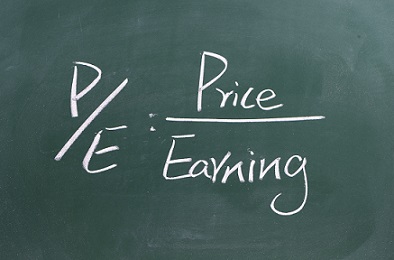 P/E : Price
Earning